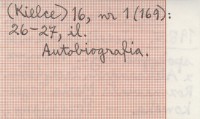 (Kielce) 16, nr 1 (169):
26-27, il.
Autobiografia.